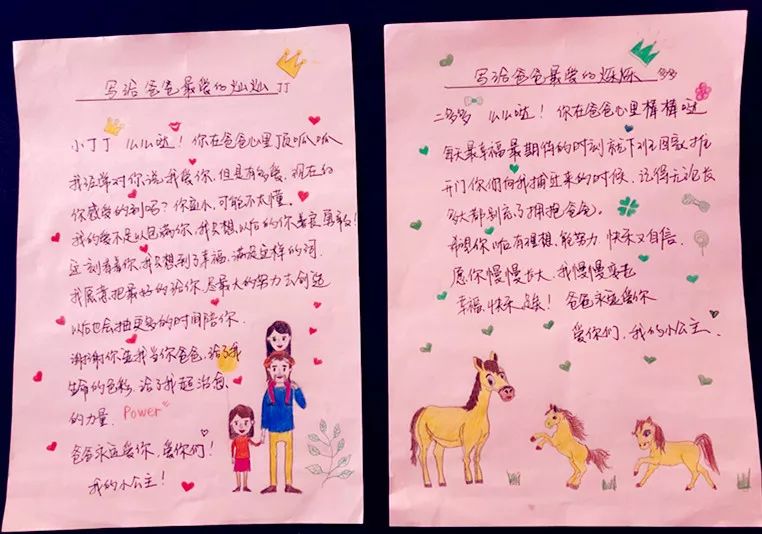 写给爸爸最爱的灿灿 JJ
小丁丁 么么哒！你在爸爸心里顶呱呱
我经常对你说我爱你,但具有多爱,现在的
你感受的到吗？你还小,可能不太懂。
我的爱不足以包满你,我只想以后的你善良勇敢！
这刻看着你,我只想到了幸福,满足这样的词.
我愿意把最好的给你,尽最大的努力去创造
以后也会抽更多的时间陪你.
谢谢你要我当你爸爸,给了我
生命的色彩,给了我超治愈
的力量. Power
爸爸永远爱你,爱你们！
我的小公主！
写给爸爸最爱的烁烁 多多
二多多 么么哒！你在爸爸心里棒棒哒
每天最幸福最期待的时刻就下班回家推
开门你们向我拥过来的时候,记得无论长
多大都别忘了拥抱爸爸。
希望你以后有理想,能努力,快乐又自信.
愿你慢慢长大,我慢慢变老
幸福,快乐,健美！爸爸永远爱你
爱你们,我的小公主.